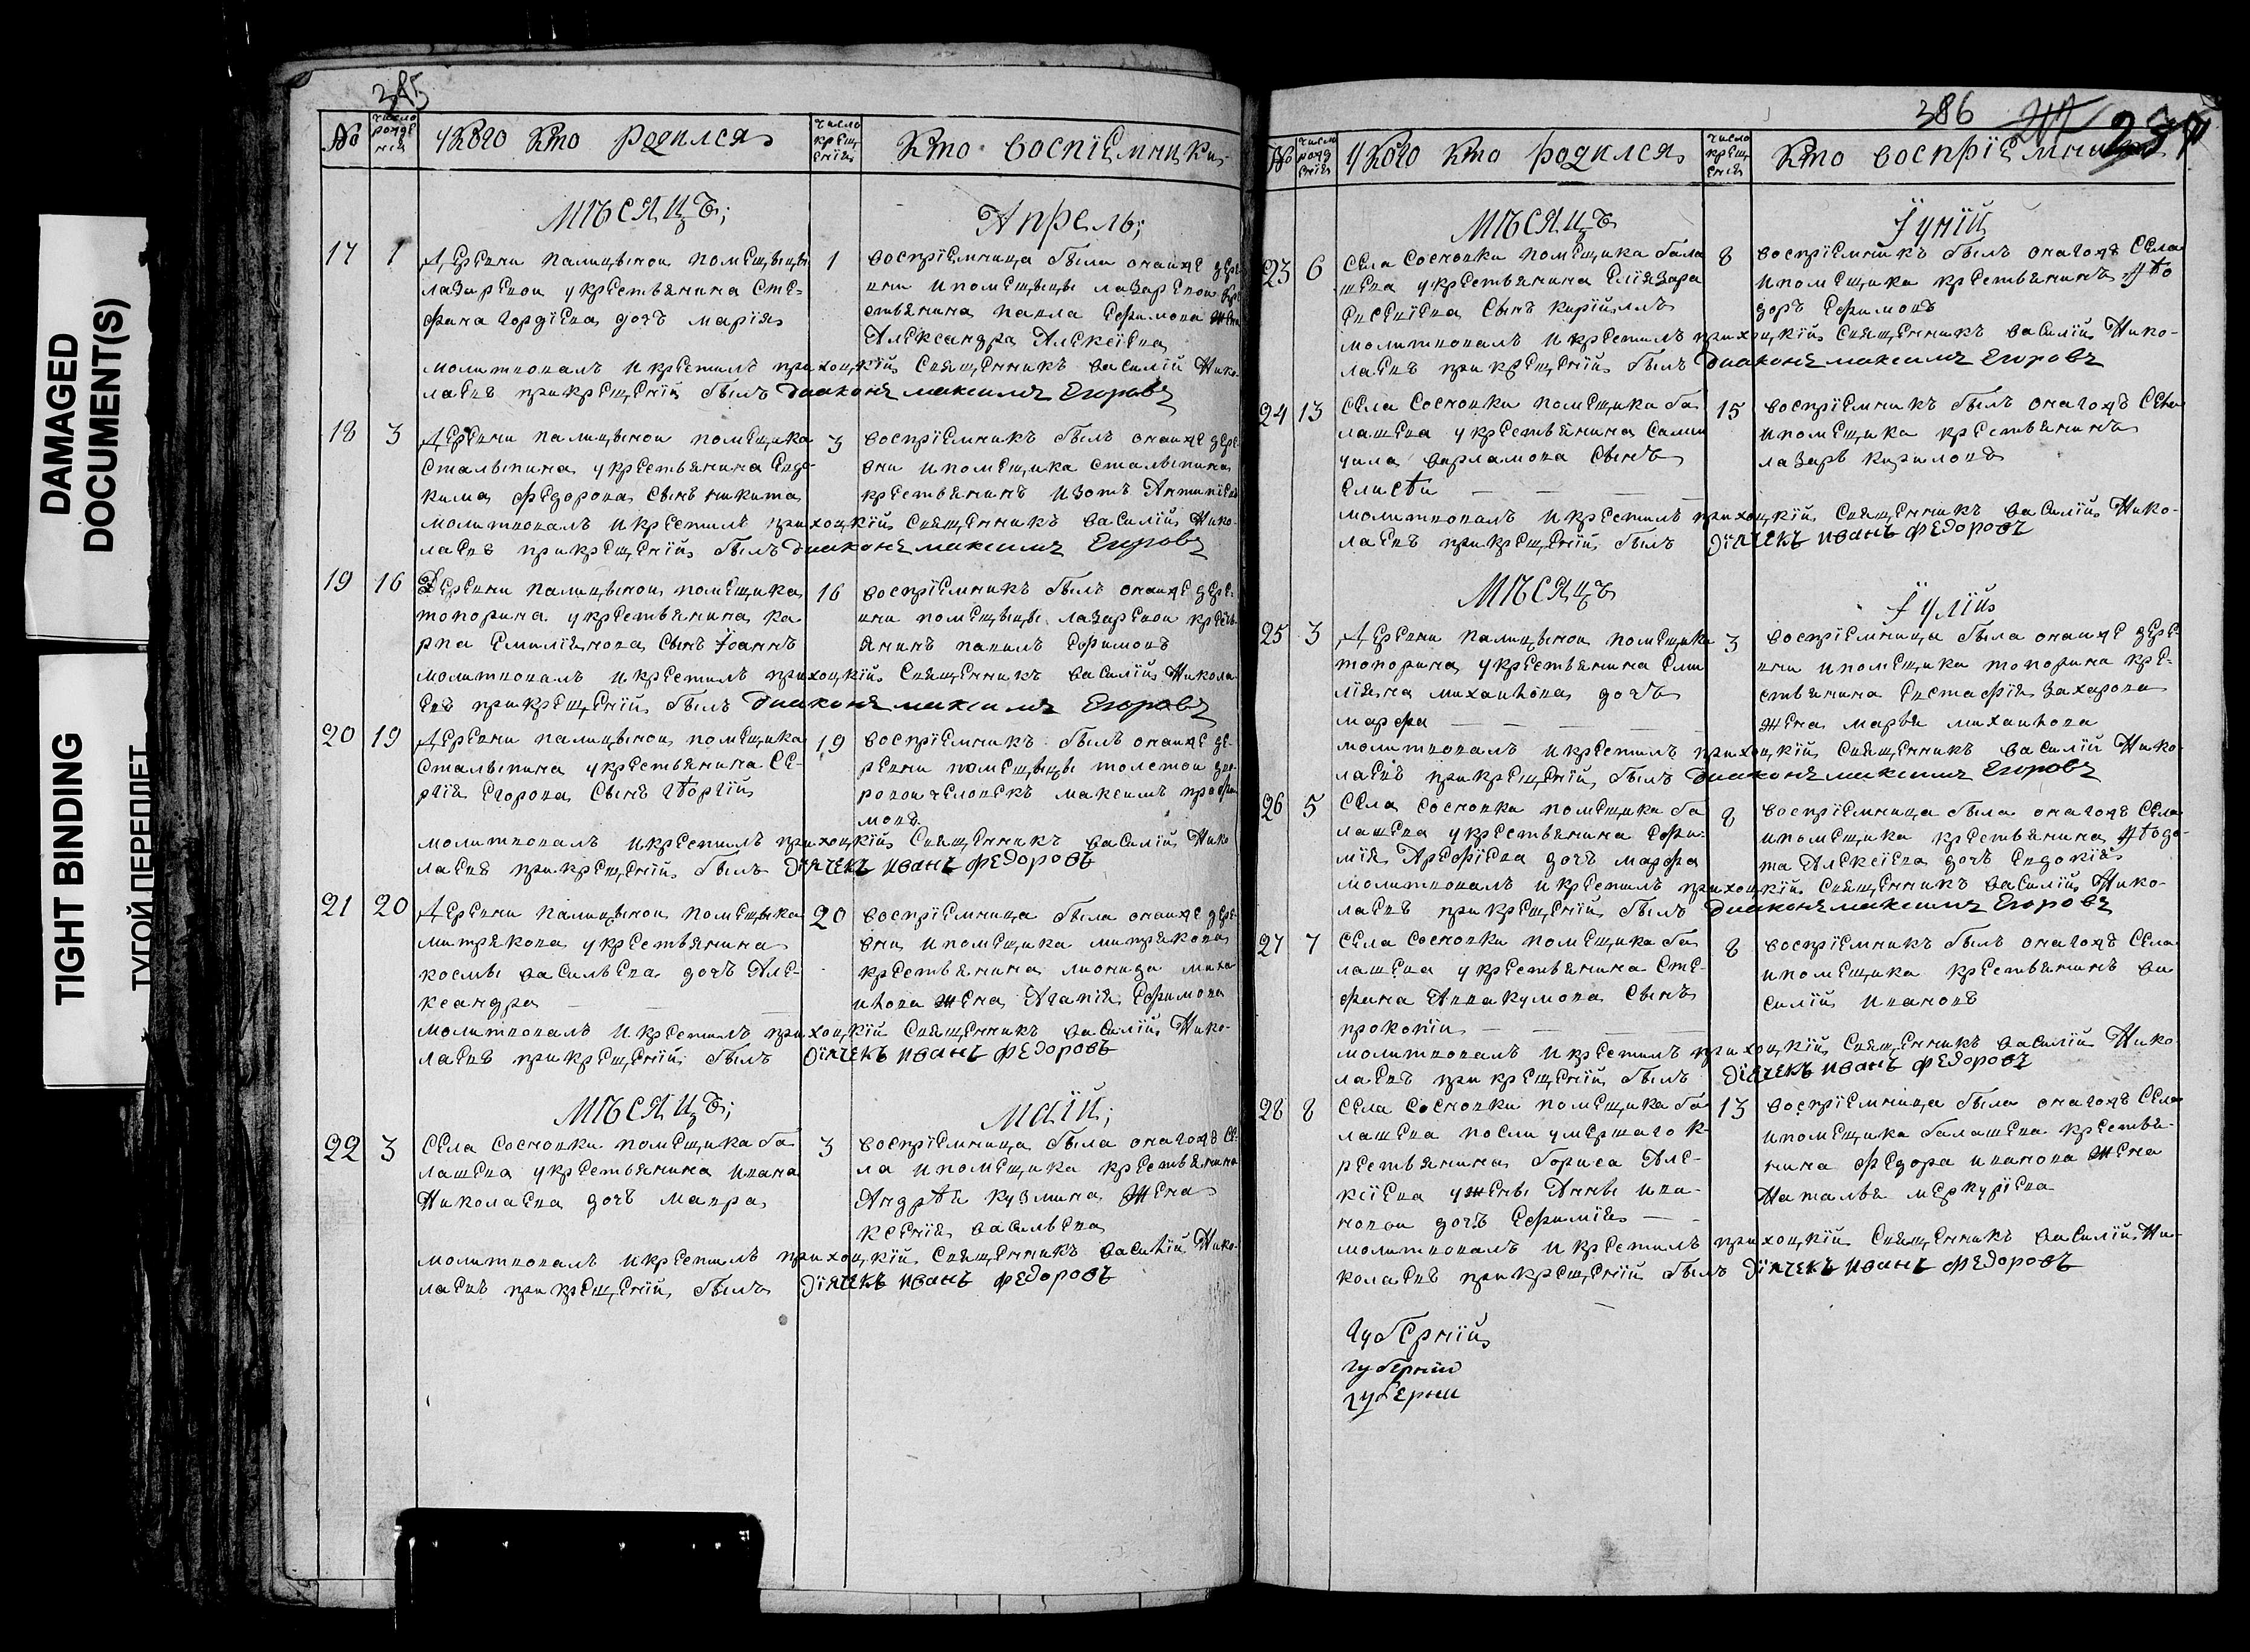 DAMAGED
DOCUMENT(S)
TIGHT BINDING
ТУГОЙ ПЕРЕПЛЕТ
385
№
число рожде нія
у кого кто родился
число крещ енія
кто воспіемники
мѣсяцъ;
Апрель;
17 1 Деревни палицыной помещицы 1
лазаревой у крестьянина Сте-
фана гордіева дочь марія
воспріемница была оная же дере
вни и помещицы лазаревой кре
стьянина павла Ефимова жена
Александра Алексіева
молитвовалъ и крестилъ приходцкій Священникъ василій Нико-
лаевъ при крещеніи былъ диаконъ максимъ Егоровъ
18 3 Деревни палицыной помещика 3
Сталыпина у крестьянина Евдо-
кима федорова Сынъ никита
воспріемникъ былъ оная же дере
вни и помещика сталыпина
крестьянинъ изотъ Антипіевъ
молитвовалъ и крестилъ приходцкій Священникъ василій Нико-
лаевъ при крещеніи былъ диаконъ максимъ Егоровъ
19 16 Деревни палицыной помещика 16
топорина у крестьянина ка
рпа Емиліянова Сынъ Іоаннъ
воспріемникъ былъ оная же дере-
вни помещицы лазаревой кресть
янинъ павелъ Ефимовъ
молитвовалъ и крестилъ приходцкій Священникъ василій Никола
евъ при крещеніи былъ диаконъ максимъ Егоровъ
20 19 Деревни палицыной помещика 19
Сталыпина у крестьянина Се-
ргія Егорова Сынъ гѣоргій
воспріемникъ былъ оная же де-
ревни помещицы толстой дво-
ровой человекъ максимъ трофи
мовъ
молитвовалъ и крестилъ приходцкій Священникъ василій Нико
лаевъ при крещеніи былъ діячекъ иванъ федоровъ
21 20 Деревни палицыной помещика 20
митрякова у крестьянина
космы васильева дочь Але-
ксандра
воспріемница была оная же дере-
вни и помещика митрякова
крестьянина леонида миха
илова жена Агапія Ефимова
молитвовалъ и крестилъ приходцкій Священникъ василій Нико-
лаевъ при крещеніи былъ діячекъ иванъ федоровъ
мѣсяцъ;
маій;
22 3 Села Сосновки помещика ба 3
лашева у крестьянина ивана
Николаева дочь мавра
воспріемница была онагожъ Се-
ла и помещика крестьянина
Андрѣя кузмина жена
ксенія васильева
молитвовалъ и крестилъ приходцкій Священникъ василій Нико-
лаевъ при крещеніи былъ діячекъ иванъ федоровъ
386
№
число рожд енія
у кого кто родился
число крещ енія
кто воспріемники
мѣсяцъ
Іуній
23 6 Села Сосновки помещика бала 8
шева у крестьянина Еліязара
Евсевіева Сынъ кирійллъ
воспріемникъ былъ онагожъ Села
и помещика крестьянинъ Фѣо
доръ Ефимовъ
молитвовалъ и крестилъ приходцкій Священникъ василій Нико-
лаевъ при крещеніи былъ диаконъ максимъ Егоровъ
24 13 Села Сосновки помещика ба 15
лашева у крестьянина Самои
уила варламова Сынъ
Елисѣи
воспріемникъ былъ онагожъ Села
и помещика крестьянинъ
лазарь кириловъ
молитвовалъ и крестилъ приходцкій Священникъ василій Нико-
лаевъ при крещеніи былъ діячекъ иванъ федоровъ
мѣсяцъ
Іулій
25 3 Деревни палицыной помещика 3
топорина у крестьянина Еми
ліяна михаилова дочь
марфа
воспріемница была оная же дере-
вни и помещика топорина кре-
стьянина Евстафія захарова
жена марья михаилова
молитвовалъ и крестилъ приходцкій Священникъ василій Нико-
лаевъ при крещеніи былъ диаконъ максимъ Егоровъ
26 5 Села Сосновки помещика ба 8
лашева у крестьянина Ефи-
мія Арефіева дочь марфа
воспріемница была онагожъ Села
и помещика крестьянина Фѣодо-
та Алексіева дочь Евдокія
молитвовалъ и крестилъ приходцкій Священникъ василій Нико-
лаевъ при крещеніи былъ диаконъ максимъ Егоровъ
27 7 Села Сосновки помещика ба 8
лашева у крестьянина Сте-
фана Аввакумова Сынъ
прокопіи
воспріемникъ былъ онагожъ Села
и помещика крестьянинъ ва
силій ивановъ
молитвовалъ и крестилъ приходцкій Священникъ василій Нико
лаевъ при крещеніи былъ діячекъ иванъ федоровъ
28 8 Села Сосновки помещика ба 13
лашева посли умершаго к-
рестьянина бориса Але-
ксіева у жены Анны ива-
новои дочь Ефимія
воспріемница была онагожъ Села
и помещика балашева крестья-
нина федора иванова жена
Наталья меркуріева
молитвовалъ и крестилъ приходцкій Священникъ василій Ни-
колаевъ при крещеніи былъ діячекъ иванъ федоровъ
губерніи
губерніи
губернии